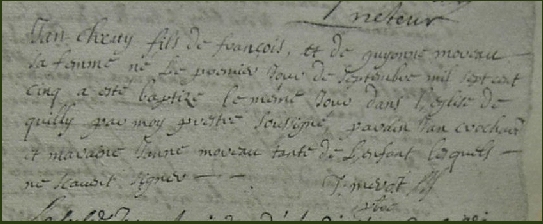 recteur
Jan chevy fils de françois, et de guyonne moveau
sa femme né le premier Jour de Septembre mil sept cent
cinq a esté baptizé le meme Jour dans l'eglise de
quilly par moy prestre Soussigné, parain Jan crochard
et maraine Janne moveau tante de L'enfant lesquels
ne Scavent Signer